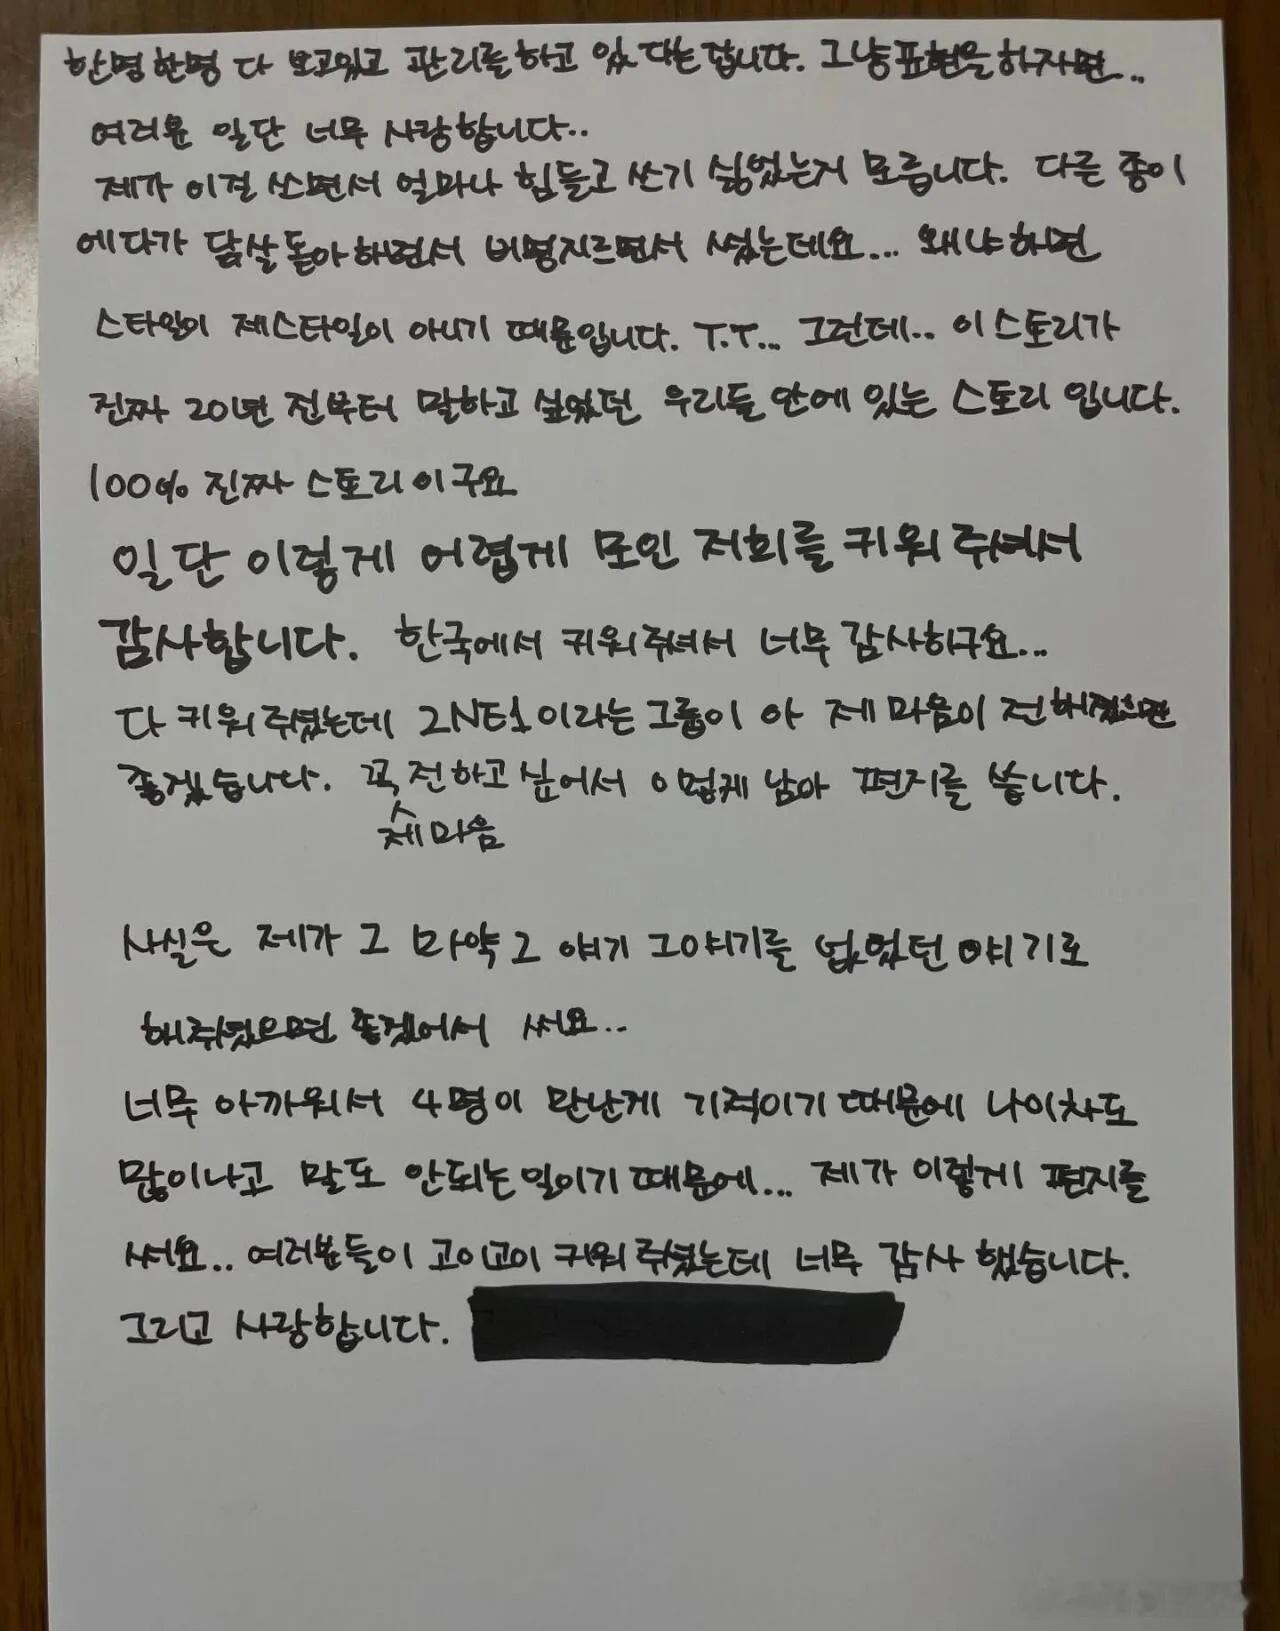 한명한명 다 보고있고 관리를하고 있다는겁니다. 그냥표현을하자면...
여러분 일단 너무 사랑합니다..
제가 이걸 쓰면서 얼마나 힘들고 쓰기 싫었는지 모릅니다. 다른 종이
에다가 닭살돋아하면서 비명지르면서 썼는데요... 왜냐하면
스타일이 제스타일이 아니기 때문입니다. T.T... 그런데.. 이스토리가
진짜 20년 전부터 말하고 싶었던 우리들 안에 있는 스토리 입니다.
100% 진짜 스토리이구요
일단 이렇게 어렵게 모인 저희를 키워주셔서
감사합니다. 한국에서 키워주셔서 너무 감사하구요...
다 키워주셨는데 2NE1이라는그룹이 아 제 마음이 전해졌으면
좋겠습니다. 꼭 전하고싶어서 이렇게 남아 편지를 씁니다.
제마음
사실은 제가 그 마약 그 얘기 그얘기를 없었던 얘기로
해주셨으면 좋겠어서 써요..
너무 아까워서 4명이 만난게 기적이기때문에 나이차도
많이나고 말도 안되는일이기때문에... 제가 이렇게 편지를
써요.. 여러분들이 고이고이 키워주셨는데 너무 감사 했습니다.
그리고 사랑합니다.